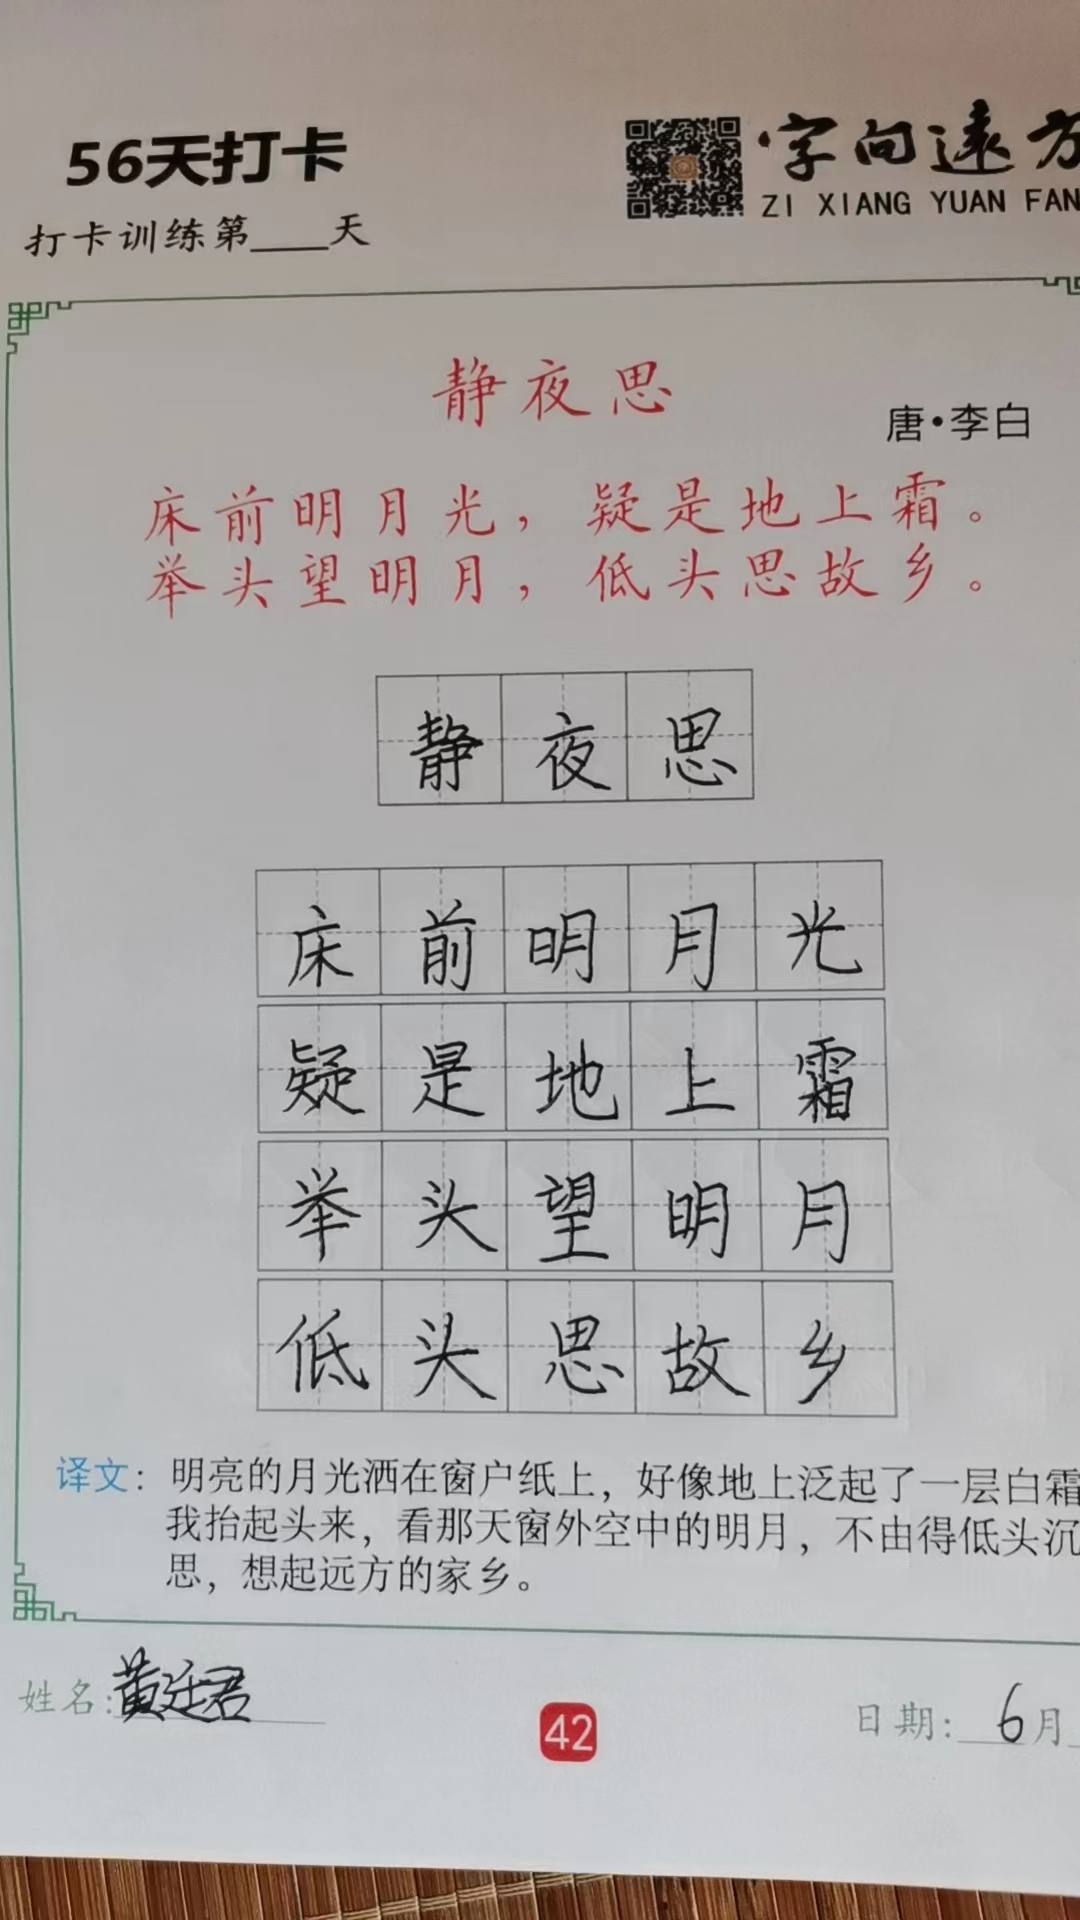 56天打卡
字向遠方
ZI XIANG YUAN FAN
打卡训练第____天
静夜思
唐·李白
床前明月光，疑是地上霜。
举头望明月，低头思故乡。
静夜思
床前明月光
疑是地上霜
举头望明月
低头思故乡
译文：明亮的月光洒在窗户纸上，好像地上泛起了一层白霜
我抬起头来，看那天窗外空中的明月，不由得低头沉
思，想起远方的家乡。
姓名：黄廷君
42
日期：6月